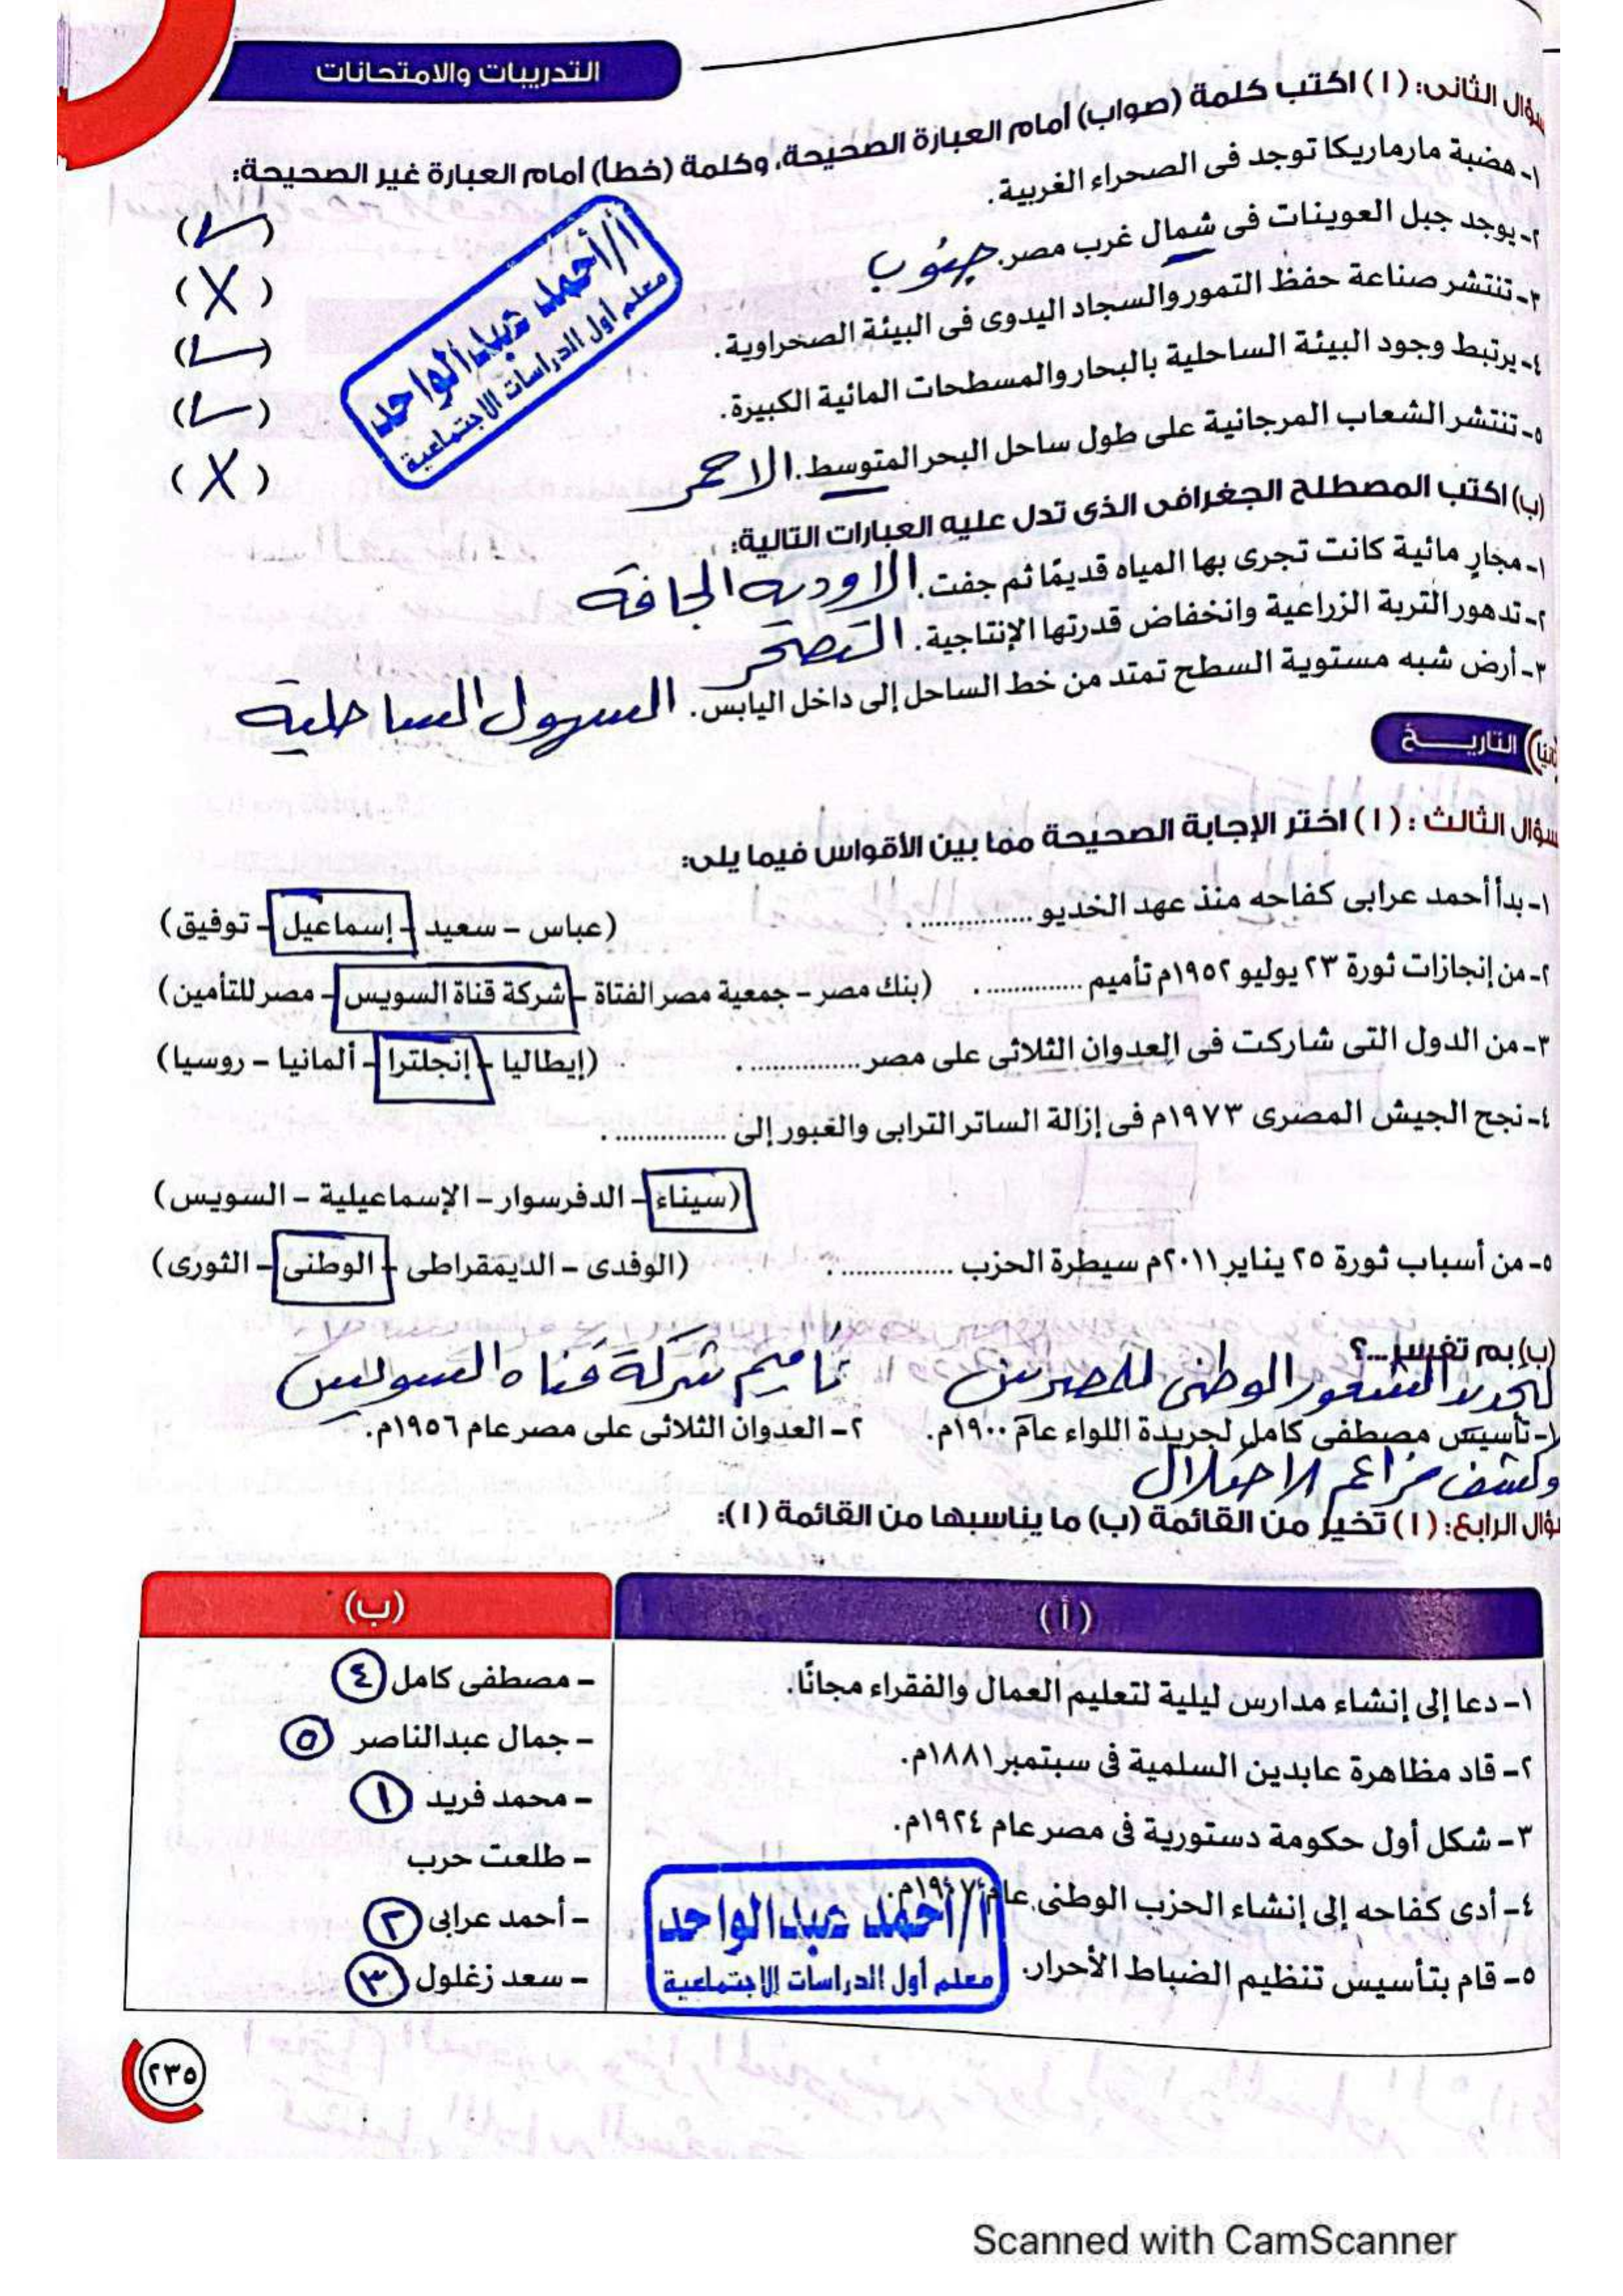 التدريبات والامتحانات
سؤال الثانى: (ا) اكتب كلمة (صواب) أمام العبارة الصحيحة، وكلمة (خطأ) أمام العبارة غير الصحيحة:
١- هضبة مارماريكا توجد فى الصحراء الغربية. (✓)
٢- يوجد جبل العوينات فى شمال غرب مصر. جنوب (X)
٣- تنتشر صناعة حفظ التمور والسجاد اليدوى فى البيئة الصحراوية. (✓)
٤- يرتبط وجود البيئة الساحلية بالبحار والمسطحات المائية الكبيرة. (✓)
٥- تنتشر الشعاب المرجانية على طول ساحل البحر المتوسط. الاحمر (X)
أ/أحمد عبدالواحد
معلم أول الدراسات الاجتماعية
(ب) اكتب المصطلح الجغرافى الذى تدل عليه العبارات التالية:
١- مجارٍ مائية كانت تجرى بها المياه قديمًا ثم جفت. الاوديه الجافة
٢- تدهور التربة الزراعية وانخفاض قدرتها الإنتاجية. التصحر
٣- أرض شبه مستوية السطح تمتد من خط الساحل إلى داخل اليابس. السهول الساحلية
ثانيا) التاريـــخ
سؤال الثالث: (ا) اختر الإجابة الصحيحة مما بين الأقواس فيما يلى:
١- بدأ أحمد عرابى كفاحه منذ عهد الخديو ............... . (عباس – سعيد – إسماعيل – توفيق)
٢- من إنجازات ثورة ٢٣ يوليو ١٩٥٢م تأميم ............... . (بنك مصر – جمعية مصر الفتاة – شركة قناة السويس – مصر للتأمين)
٣- من الدول التى شاركت فى العدوان الثلاثى على مصر ............... . (إيطاليا – إنجلترا – ألمانيا – روسيا)
٤- نجح الجيش المصرى ١٩٧٣م فى إزالة الساتر الترابى والعبور إلى ............... .
(سيناء – الدفرسوار – الإسماعيلية – السويس)
٥- من أسباب ثورة ٢٥ يناير ٢٠١١م سيطرة الحزب ............... . (الوفدى – الديمقراطى – الوطنى – الثورى)
(ب) بم تفسر...؟
لتجديد الشعور الوطنى للمصريين تأميم شركة قناة السويس
١- تأسيس مصطفى كامل لجريدة اللواء عام ١٩٠٠م. ٢- العدوان الثلاثى على مصر عام ١٩٥٦م.
وكشف مزاعم الاحتلال
سؤال الرابع: (ا) تخير من القائمة (ب) ما يناسبها من القائمة (ا):
(أ) (ب)
١- دعا إلى إنشاء مدارس ليلية لتعليم العمال والفقراء مجانًا. – مصطفى كامل ٤
٢- قاد مظاهرة عابدين السلمية فى سبتمبر ١٨٨١م. – جمال عبدالناصر ٥
٣- شكل أول حكومة دستورية فى مصر عام ١٩٢٤م. – محمد فريد ١
– طلعت حرب
٤- أدى كفاحه إلى إنشاء الحزب الوطنى عام ١٩٠٧م. – أحمد عرابى ٢
٥- قام بتأسيس تنظيم الضباط الأحرار. – سعد زغلول ٣
أ/أحمد عبدالواحد
معلم أول الدراسات الاجتماعية
٢٣٥
Scanned with CamScanner